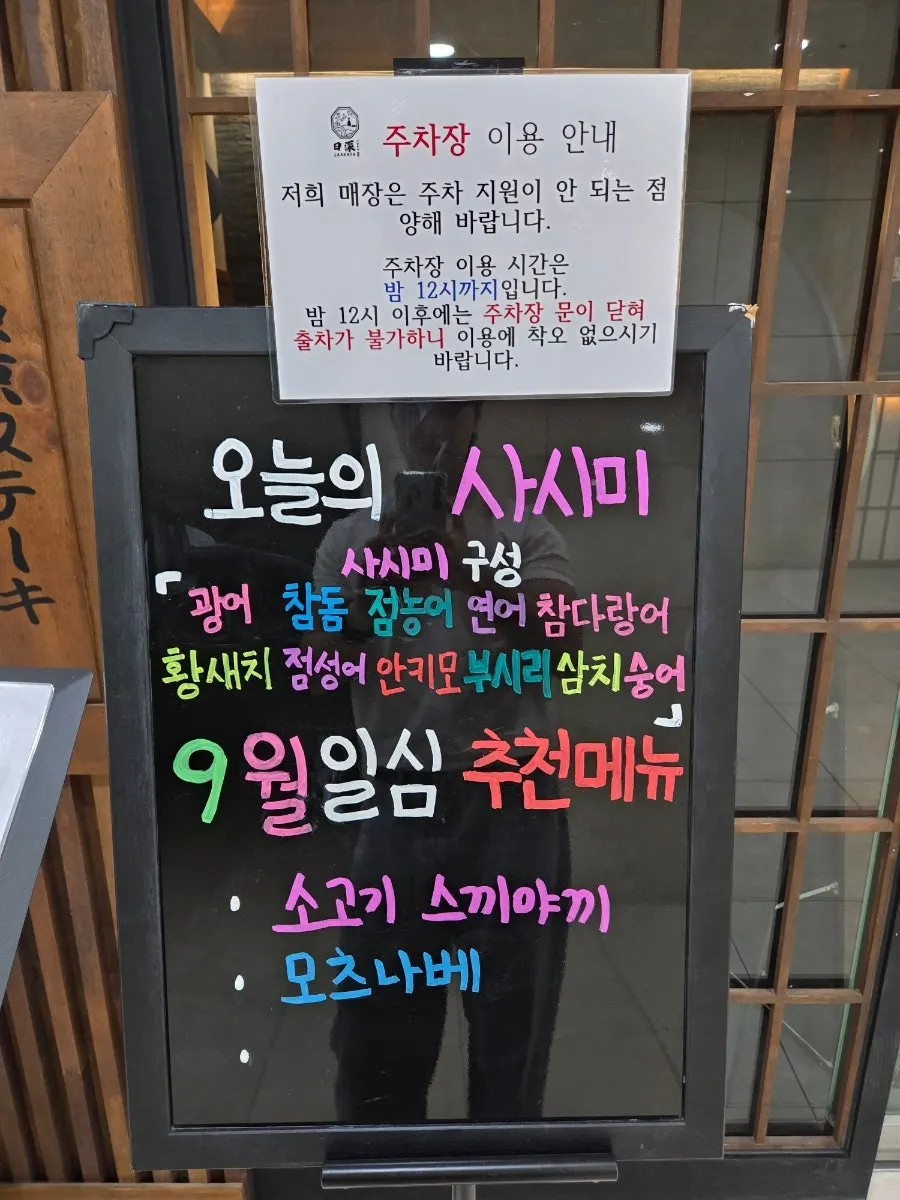 日深
주차장 이용 안내
저희 매장은 주차 지원이 안 되는 점
양해 바랍니다.
주차장 이용 시간은
밤 12시까지입니다.
밤 12시 이후에는 주차장 문이 닫혀
출차가 불가하니 이용에 착오 없으시기
바랍니다.
오늘의 사시미
사시미 구성
「광어 참돔 점농어 연어 참다랑어
황새치 점성어 안키모 부시리 삼치 숭어」
9월 일심 추천메뉴
· 소고기 스끼야끼
· 모츠나베
·
ステーキ